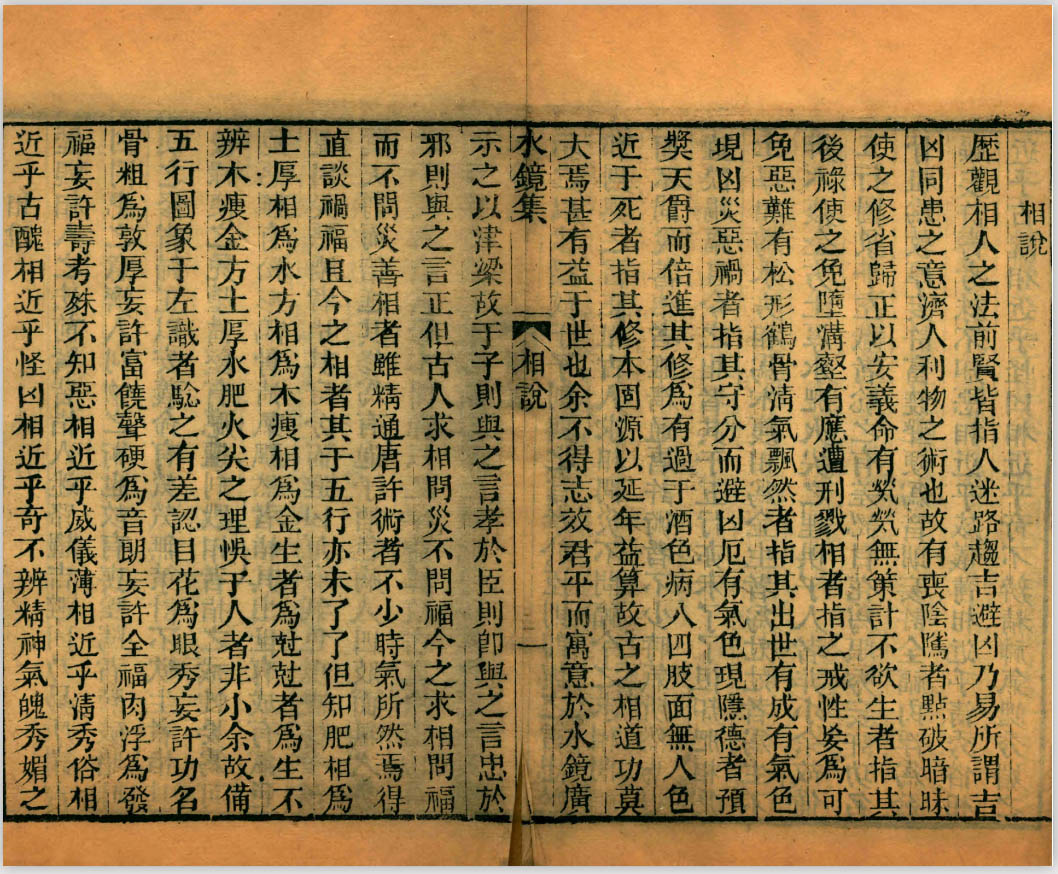 相說
歷觀相人之法前賢皆指人迷路趨吉避凶乃易所謂吉
凶同患之意濟人利物之術也故有喪陰隲者㸃破暗昧
使之修省歸正以安義命有煢煢無策計不欲生者指其
後祿使之免墮溝壑有應遭刑戮相者指之戒性妥為可
免惡難有松形鶴骨淸氣飄然者指其出世有成有氣色
現凶災惡禍者指其守分而避凶厄有氣色現隱德者預
奬天爵而倍進其修為有過于酒色病入四肢面無人色
近于死者指其修本固源以延年益算故古之相道功莫
大焉甚有益于世也余不得志效君平而寓意於水鏡廣
水鏡集
相說
一
示之以津梁故于子則與之言孝於臣則卽與之言忠於
邪則與之言正但古人求相問災不問福今之求相問福
而不問災善相者雖精通唐許術者不少時氣所然焉得
直談禍福且今之相者其于五行亦未了了但知肥相為
土厚相為水方相為木瘦相為金生者為尅尅者為生不
辨木瘦金方土厚水肥火尖之理悞于人者非小余故備
五行圖象于左識者騐之有差認目花為眼秀妄許功名
骨粗為敦厚妄許富饒聲硬為音朗妄許全福肉浮為發
福妄許壽考殊不知惡相近乎威儀薄相近乎淸秀俗相
近乎古醜相近乎怪凶相近乎奇不辨精神氣魄秀媚之